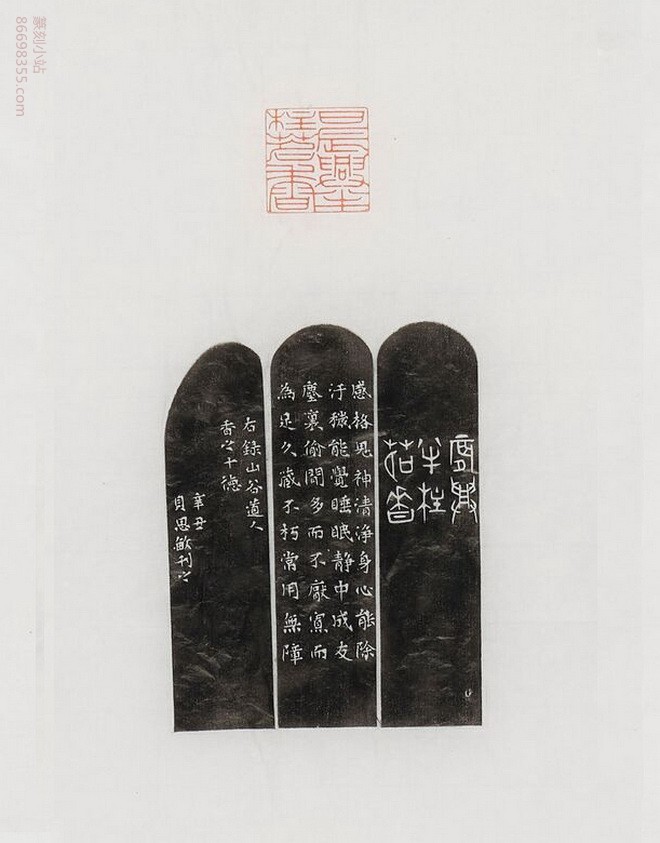 篆刻小站
86698355.com
晨興半
柱茗香
晨興
半柱
茗香
感格鬼神清淨身心能除
汙穢能覺睡眠靜中成友
塵裏偷閒多而不厭寡而
為足久藏不朽常用無障
右錄山谷道人
香之十德
辛丑
貝思敏刊之